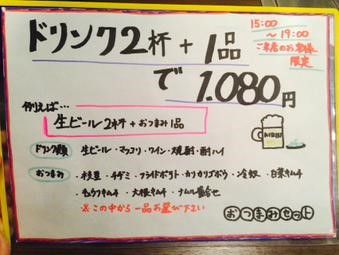 ドリンク2杯+1品
で1.080円
15:00
~19:00
ご来店のお客様
限定
例えば…
生ビール2杯+おつまみ1品
ドリンク類 生ビール・マッコリ・ワイン・焼酎・酎ハイ
おつまみ ・枝豆・チヂミ・フライドポテト・カリカリゴボウ・冷奴・白菜キムチ
・キュウリキムチ・大根キムチ・ナムル盛合せ
※この中から一品お選び下さい
おつまみセット